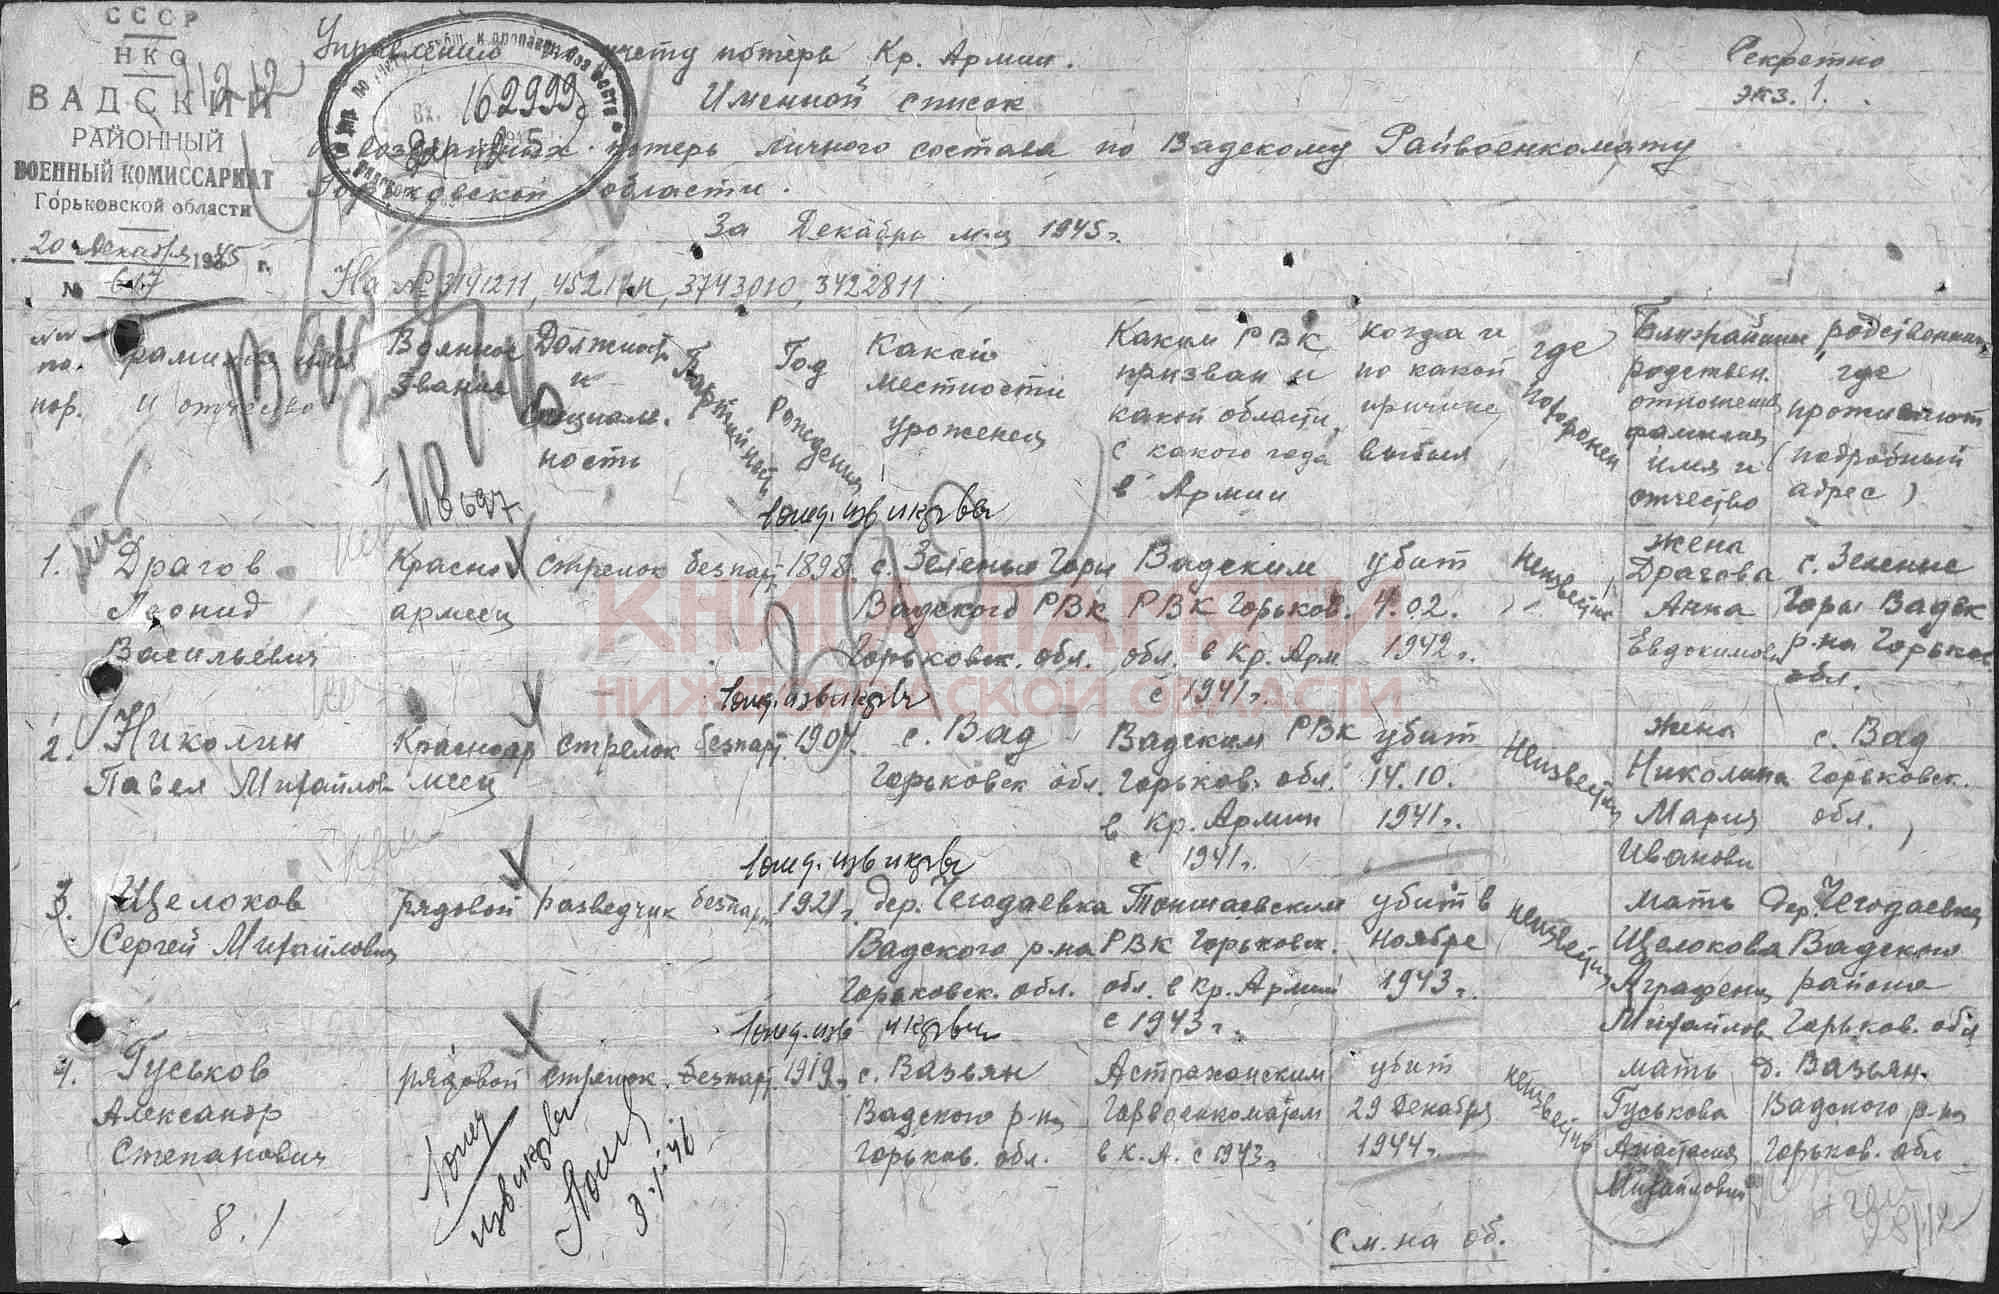 СССР
НКО
ВАДСКИЙ
РАЙОННЫЙ
ВОЕННЫЙ КОМИССАРИАТ
Горьковской области
20 декабря 1945 г.
№ 617
Вх. 162999
Секретно
экз. 1.
Управлению учету потерь Кр. Армии.
Именной список
безвозвратных потерь личного состава по Вадскому Райвоенкомату
Горьковской области.
За Декабрь м-ц 1945 г.
На № 3743010, 3422811
№№ по. пор.
Фамилия имя и отчество
Военное звание
Должность и специальность
Партийность
Год рождения
Какой местности уроженец
Каким РВК призван и какой области, с какого года в Армии
когда и по какой причине выбыл
где похоронен
Ближайшие родственники
родствен. отношение фамилия имя и отчество
где проживают (подробный адрес)
118697
1. Драгов Леонид Васильевич
Красноармеец
стрелок
безпарт
1898.
с. Зеленые Горы Вадского РВК Горьковск. обл.
Вадским РВК Горьков. обл. в Кр. Арм. с 1941 г.
убит 4.02. 1942 г.
Неизвестно
жена Драгова Анна Евдокимов
с. Зеленые Горы Вадск р-на Горьков обл.
2. Николин Павел Михайлов
Красноармеец
стрелок
безпарт
1904.
с. Вад Горьковск обл.
Вадским РВК Горьков. обл. в Кр. Армии с 1941 г.
убит 14.10. 1941 г.
Неизвестно
жена Николина Мария Ивановн
с. Вад Горьковск. обл.
3. Щелоков Сергей Михайлович
рядовой
разведчик
безпарт
1921 г.
дер. Чегодаевка Вадского р-на Горьковск. обл.
Тоншаевским РВК Горьковск. обл. в Кр. Армии с 1943 г.
убит в ноябре 1943 г.
неизвестно
мать Щелокова Аграфена Михайлов
дер. Чегодаевка Вадского района Горьков. обл
4. Гуськов Александр Степанович
рядовой
стрелок
безпарт
1919 г.
с. Вазьян Вадского р-на Горьков. обл.
Астраханским Горвоенкоматом в К. А. с 1943 г
убит 29 декабря 1944 г.
неизвестно
мать Гуськова Анастасия Михайловн
д. Вазьян. Вадского р-на Горьков. обл
См. на об.
КНИГА ПАМЯТИ
НИЖЕГОРОДСКОЙ ОБЛАСТИ